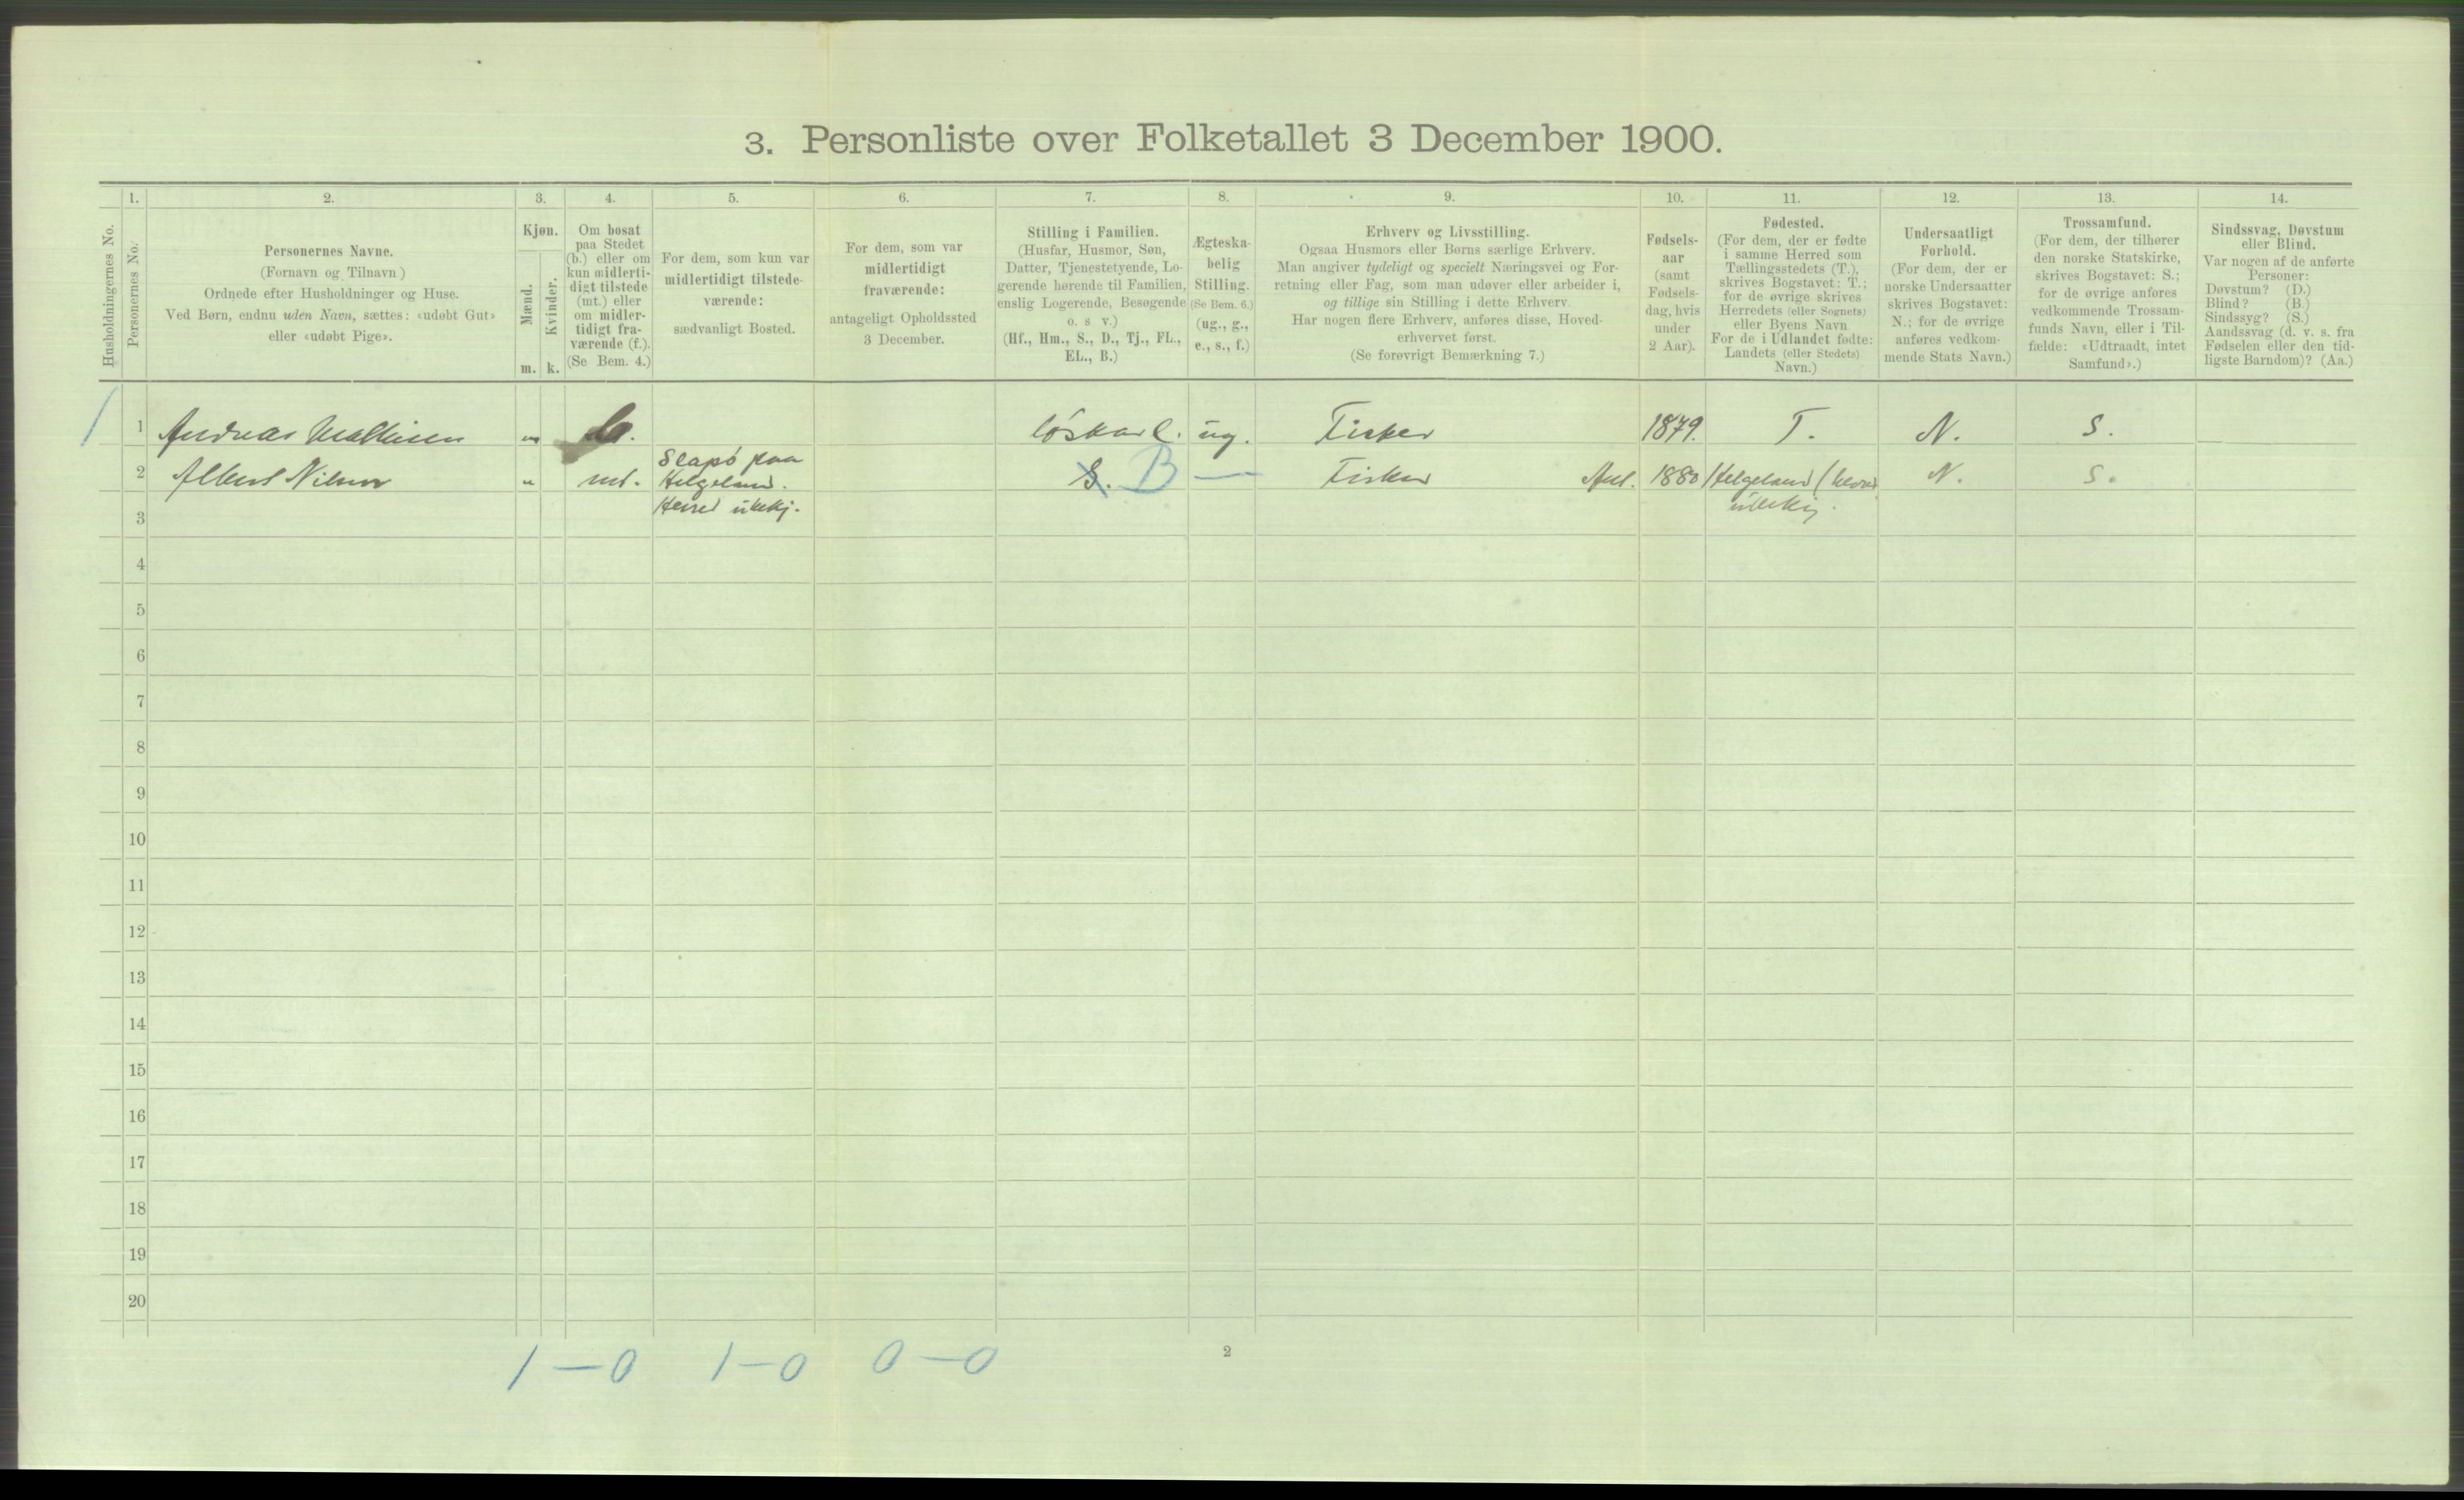 3. Personliste over Folketallet 3 December 1900.
1. 2. 3. 4. 5. 6. 7. 8. 9. 10. 11. 12. 13. 14.
Husholdningernes No.
Personernes No.
Personernes Navne.
(Fornavn og Tilnavn)
Ordnede efter Husholdninger og Huse.
Ved Børn, endnu uden Navn, sættes: «udøbt Gut»
eller «udøbt Pige».
Kjøn.
Mænd.
Kvinder.
m. k.
Om bosat
paa Stedet
(b.) eller om
kun midlerti-
digt tilstede
(mt.) eller
om midler-
tidigt fra-
værende (f.).
(Se Bem. 4.)
For dem, som kun var
midlertidigt tilstede-
værende:
sædvanligt Bosted.
For dem, som var
midlertidigt
fraværende:
antageligt Opholdssted
3 December.
Stilling i Familien.
(Husfar, Husmor, Søn,
Datter, Tjenestetyende, Lo-
gerende hørende til Familien,
enslig Logerende, Besøgende
o. s v.)
(Hf., Hm., S., D., Tj., FL.,
EL., B.)
Ægteska-
belig
Stilling.
(Se Bem. 6.)
(ug., g.,
e., s., f.)
Erhverv og Livsstilling.
Ogsaa Husmors eller Børns særlige Erhverv.
Man angiver tydeligt og specielt Næringsvei og For-
retning eller Fag, som man udøver eller arbeider i,
og tillige sin Stilling i dette Erhverv.
Har nogen flere Erhverv, anføres disse, Hoved-
erhvervet først.
(Se forøvrigt Bemærkning 7.)
Fødsels-
aar
(samt
Fødsels-
dag, hvis
under
2 Aar).
Fødested.
(For dem, der er fødte
i samme Herred som
Tællingsstedets (T.),
skrives Bogstavet: T.;
for de øvrige skrives
Herredets (eller Sognets)
eller Byens Navn
For de i Udlandet fødte:
Landets (eller Stedets)
Navn.)
Undersaatligt
Forhold.
(For dem, der er
norske Undersaatter
skrives Bogstavet:
N.; for de øvrige
anføres vedkom-
mende Stats Navn.)
Trossamfund.
(For dem, der tilhører
den norske Statskirke,
skrives Bogstavet: S.;
for de øvrige anføres
vedkommende Trossam-
funds Navn, eller i Til-
fælde: «Udtraadt, intet
Samfund».)
Sindssvag, Døvstum
eller Blind.
Var nogen af de anførte
Personer:
Døvstum? (D.)
Blind? (B.)
Sindssyg? (S.)
Aandssvag (d. v. s. fra
Fødselen eller den tid-
ligste Barndom)? (Aa.)
1 1 Andreas m b. løskarl. ug. Fisker 1879. T. N. S.
2 Albert Nilsen mt. Slapø paa S. B — Fisker 1880 Helgeland N. S.
Helgeland.
3 Herred ubekj. ubekj.
4
5
6
7
8
9
10
11
12
13
14
15
16
17
18
19
20
1 — 0 1 — 0 0 — 0
2